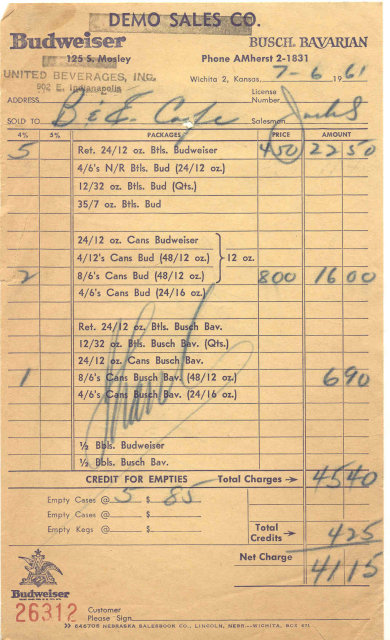 DEMO SALES CO.
Budweiser BUSCH BAVARIAN
125 S. Mosley Phone AMherst 2-1831
UNITED BEVERAGES, INC.
502 E. Indianapolis
Wichita 2, Kansas, 7-6 1961
License
Number
ADDRESS
SOLD TO B & E Cafe Salesman Jack S
4% 5% PACKAGES PRICE AMOUNT
5 Ret. 24/12 oz. Btls. Budweiser 450 22 50
4/6's N/R Btls. Bud (24/12 oz.)
12/32 oz. Btls. Bud (Qts.)
35/7 oz. Btls. Bud
24/12 oz. Cans Budweiser
4/12's Cans Bud (48/12 oz.) 12 oz.
2 8/6's Cans Bud (48/12 oz.) 800 16 00
4/6's Cans Bud (24/16 oz.)
Ret. 24/12 oz. Btls. Busch Bav.
12/32 oz. Btls. Busch Bav. (Qts.)
24/12 oz. Cans Busch Bav.
1 8/6's Cans Busch Bav. (48/12 oz.) 6 90
4/6's Cans Busch Bav. (24/16 oz.)
½ Bbls. Budweiser
½ Bbls. Busch Bav.
CREDIT FOR EMPTIES Total Charges → 45 40
Empty Cases @ 5 $ 85
Empty Cases @ $
Empty Kegs @ $
Total
Credits → 4 25
Net Charge 41 15
Budweiser
26312
Customer
Please Sign
>> 646706 NEBRASKA SALESBOOK CO., LINCOLN, NEBR.—WICHITA, BOX 671